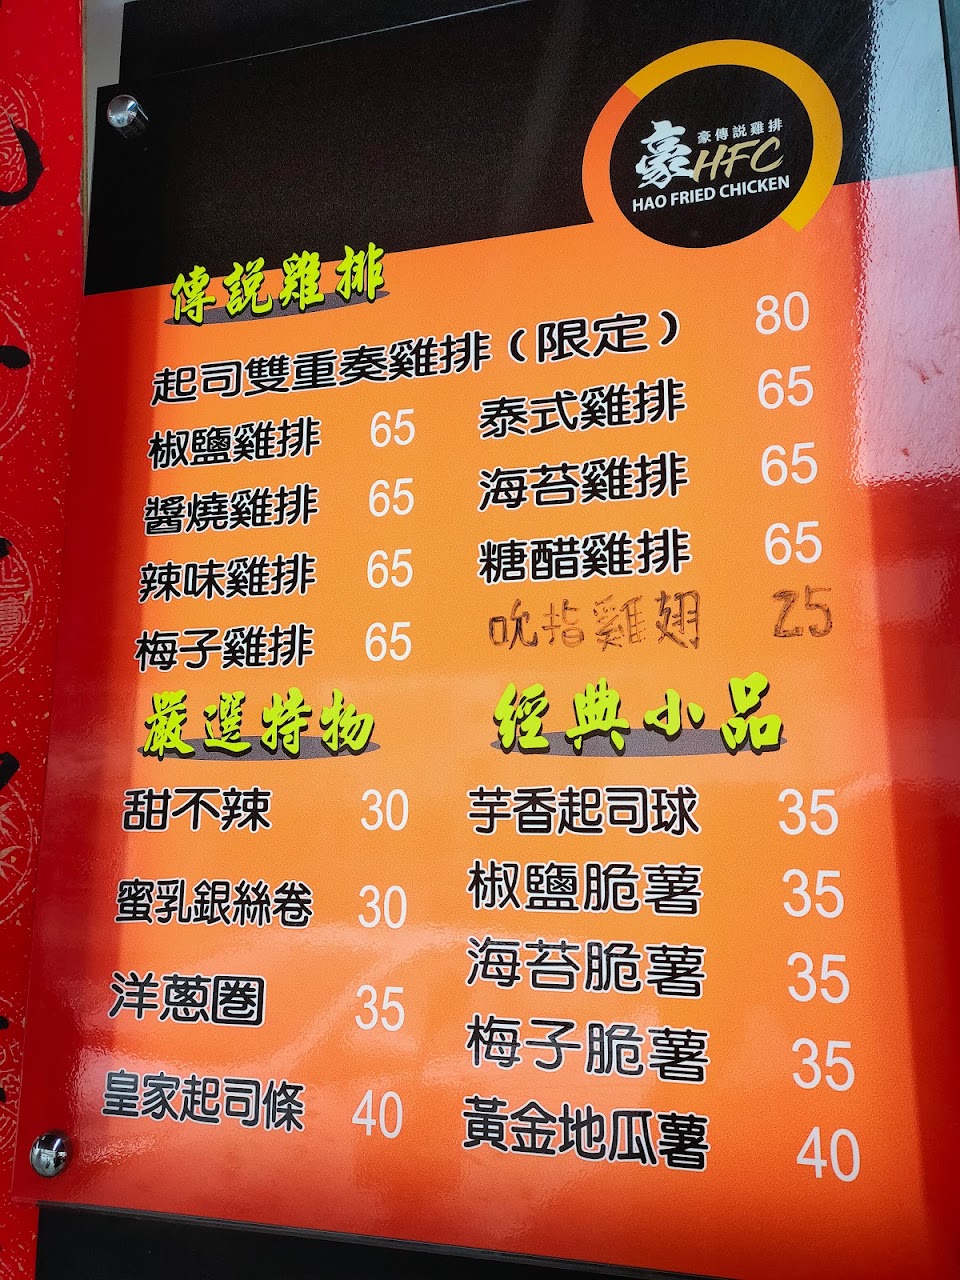 豪
豪傳說雞排
HFC
HAO FRIED CHICKEN
傳說雞排
起司雙重奏雞排（限定） 80
椒鹽雞排 65 泰式雞排 65
醬燒雞排 65 海苔雞排 65
辣味雞排 65 糖醋雞排 65
梅子雞排 65 吮指雞翅 25
嚴選特物
甜不辣 30
蜜乳銀絲卷 30
洋蔥圈 35
皇家起司條 40
經典小品
芋香起司球 35
椒鹽脆薯 35
海苔脆薯 35
梅子脆薯 35
黃金地瓜薯 40